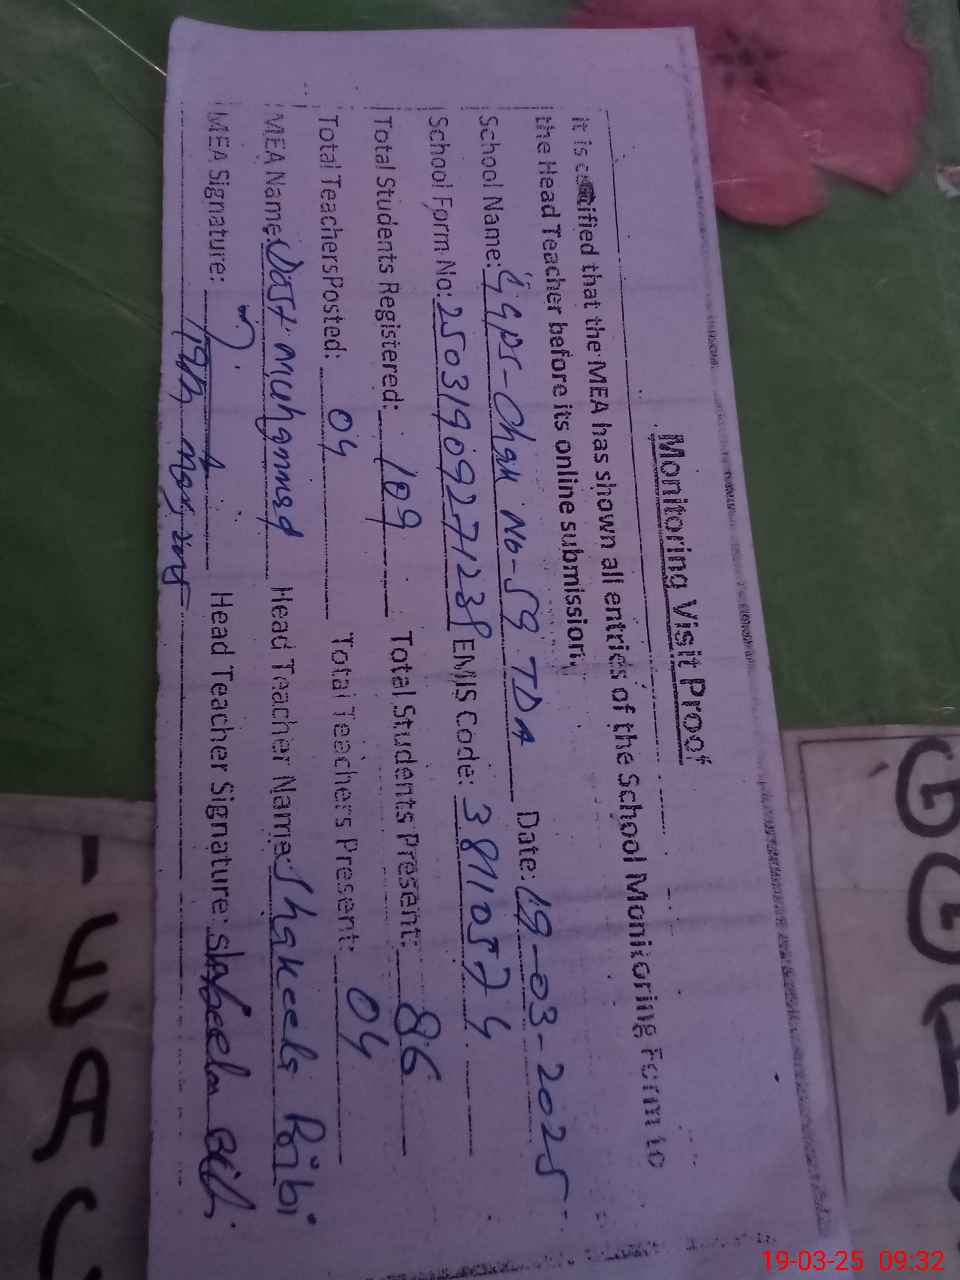 Monitoring Visit Proof
it is certified that the MEA has shown all entries of the School Monitoring Form to
the Head Teacher before its online submission.
School Name: GGPS-Chak No-59 TDA Date: 19-03-2025
School Form No: 25031909271238 EMIS Code: 38110574
Total Students Registered: 109 Total Students Present: 86
Total Teachers Posted: 04 Total Teachers Present: 04
MEA Name: Dost Muhammad Head Teacher Name: Shakeela Bibi
MEA Signature: Head Teacher Signature: Shakeela Bibi
19-03-25 09:32